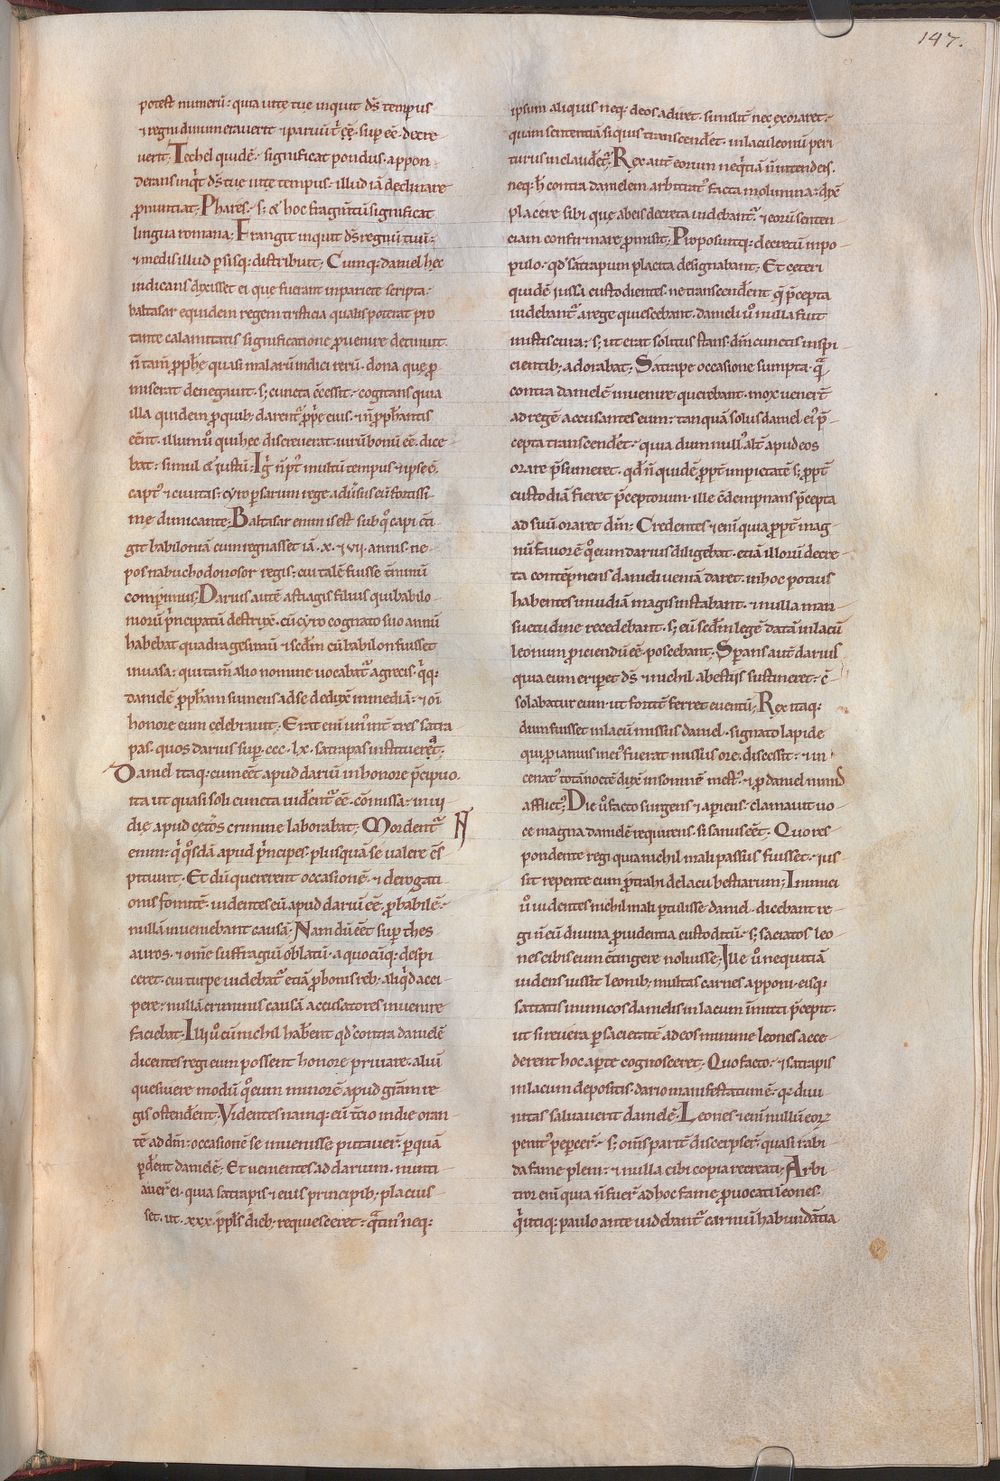 147.
potest numerū: quia uite tue inquit ds̄ tempus
& regni dinumerauerit & paruū t̄ eē. sup eē decre
uerit. Techel quidē. significat pondus. appon
derans inqͥt ds̄ tue uite tempus. illud iā declinare
pnuntiat. Phares. s; & hoc fragm̄tū significat
lingua romana; Frangit inquit ds̄ regnū tuū:
& medis illud psisq; distribuit; Cumq; daniel hec
indicans dixisset ei que fuerant inpariete scripta:
baltasar equidem regem tristicia qualis poterat pro
tante calamitatis significatione puenire detinuit.
n̄ tam̄ pph̄e quasi malarū indici rerū. dona que p
miserat denegauit. s; cuncta c̄cessit. cogitans quia
illa quidem pquib; darent᷑ ppͥe eius. & n̄ pph̄antis
eēnt. illum ū qui hec discreuerat uirū bonū eē dice
bat: simul & iustū. Igͥ n̄ pt᷒ multū tempus & ipse ē
capt᷒ & ciuitas. cyro psarum rege aduͥsus eū fortissi
me dimicante; Baltasar enim is est sub qͦ capi c̄ti
git babiloniā cum regnasset iā .x. & vii. annis. ne
pos nabuchodonosor regis; cui talē fuisse tͥminū
comperimus; Darius autē astiagis filius qui babilo
niorū pͥncipatū destrixͭ. cū cyro cognato suo annū
habebat quadragesimū & scd̄m cū babilon fuisset
inuasa: qui tam̄ alio nomine uocabat᷑ a grecis. qͥq;
danielē pph̄am sumens ad se deduxͭ in mediā. & oī
honore eum celebrauit. Erat enī unͥ int̄ tres satra
pas. quos darius sup .ccc. lx. satrapas instituerat;
Daniel itaq; cum eēt apud dariū in honore pͥcipuo.
ita ut quasi soli cuncta uidͬent᷑ eē cōmissa. inui
die apud cet̄os crimine laborabat; Mordent᷑
enim. qͥ qͦsdā apud pͥncipes. plusquā se ualere c̄s
pitiunt. Et dū quererent occasionē. & derogati
onis fomitē. uidentes eū apud dariū eē. pbabilē.
nullā inueniebant causā. Nam dū eēt sup thes
auros. & om̄e suffragiū oblatū. a quocūq; despi
ceret. cui turpe uidebat᷑ etiā pbonis reb; aliqͥd acci
pere. nullā criminis causā accusatores inuenire
faciebat. Illi ū cū nichil habͬent qd̄ contra danielē
dicentes regi eum possent honore priuare. aliū
quesiuere modū qͦ eum minorē apud grām re
gis ostendͬent. Videntes namq; eū tͥcio in die oran
tē ad dm̄. occasionē se inuenisse putauer̄. p quā
pdͬent danielē; Et uenientes ad darium. nunti
auer̄ ei. quia satrapis & eius principib; placuis
set. ut .xxx. pplͥs dieb; requiesceret. qͣtin᷒ neq;
ipsum aliquis neq; deos adiret. similit̄ nec exoraret.
quam sententiā si quis transcendͬet. in lacu leonū peri
turus includͬet᷑. Rex aut̄ eorum neqͥtiā n̄ intendens.
neq; h̄ contra danielem arbitrat᷒ facta molimina. dixͭ
placere sibi que ab eis decreta uidebant᷑. & eorū senten
ciam confirmare pmisit. Proposuitq; decretū in po
pulo. qd̄ satrapum placita designabant; Et ceteri
quidē iussa custodientes. ne transcendͬent qͤ pͥcepta
uidebant᷑ a rege quiescebant. danieli ū nulla fuit
iustis cura. s; ut erat solitus stans. dm̄ cunctis inspi
cientib; adorabat; Satrape occasione sumpta. qͣ
contra danielē inuenire querebant. mox uenert̄
ad regē accusantes eum. tanquā solus daniel ei᷒ pͥ
cepta transcendͬet. quia dum null᷒ alt̄ apud eos
orare pͥsumeret. qd̄ n̄ quidē ppt̄ impietatē s; ppt̄
custodiā fieret pͥceptorum. ille c̄dempnans pͥcepta
ad suū oraret dm̄. Credentes & enī quia ppt̄ mag
nū fauorē qͦ eum darius diligebat. etiā illorū decre
ta contēpnens danieli ueniā daret. in hoc potius
habentes inuidiā magis instabant. & nulla man
suetudine recedebant. s; eū scd̄m legē datā in lacū
leonum piciendū eē poscebant; Sperans aut̄ darius
quia eum eriperet ds̄ & nichil a bestijs sustineret. c̄
solabatur eum. ut fortit̄ ferret euentū; Rex itaq;
dum fuisset in lacū missus daniel. signato lapide
qui p ianuis inci᷒ fuerat missus ore. discessit. & in
cenat᷒ totā noctē duxͭ insomnē mest᷒. & p daniel nimis
afflict᷒; Die ū facto surgens & apiens. clamauit uo
ce magna danielē requirens. si saluus eēt. Quo res
pondente regi quia nichil mali passus fuisset. ius
sit repente eum pͥtrahi de lacu bestiarum; Inimici
ū uidentes nichil mali ptulisse daniel. dicebant re
gi n̄ eū diuina puidentia custoditū. s; saciatos leo
nes cibis eum c̄tingere noluisse. Ille ū nequitiā
uidens iussit leonib; multas carnes apponi. eisq;
satiatis inimicos danielis in lacum inmitti pͥcepit.
ut si reuera p sacietatē ad eos minime leones acce
derent hoc apte cognosceret. Quo facto. & satrapis
in lacum depositis. dario manifestatumē. qͥ diui
nitas saluauerit danielē. Leones & enī nullū eoꝝ
penit᷒ pepcer̄. s; om̄s partͭ discerpser̄. quasi rabi
da fame pleni. & nulla cibi copia recreati; Arbi
tror enī quia n̄ fuer̄ ad hoc fame puocati leones.
qͥ utiq; paulo ante uidebant᷑ carniū habundātia